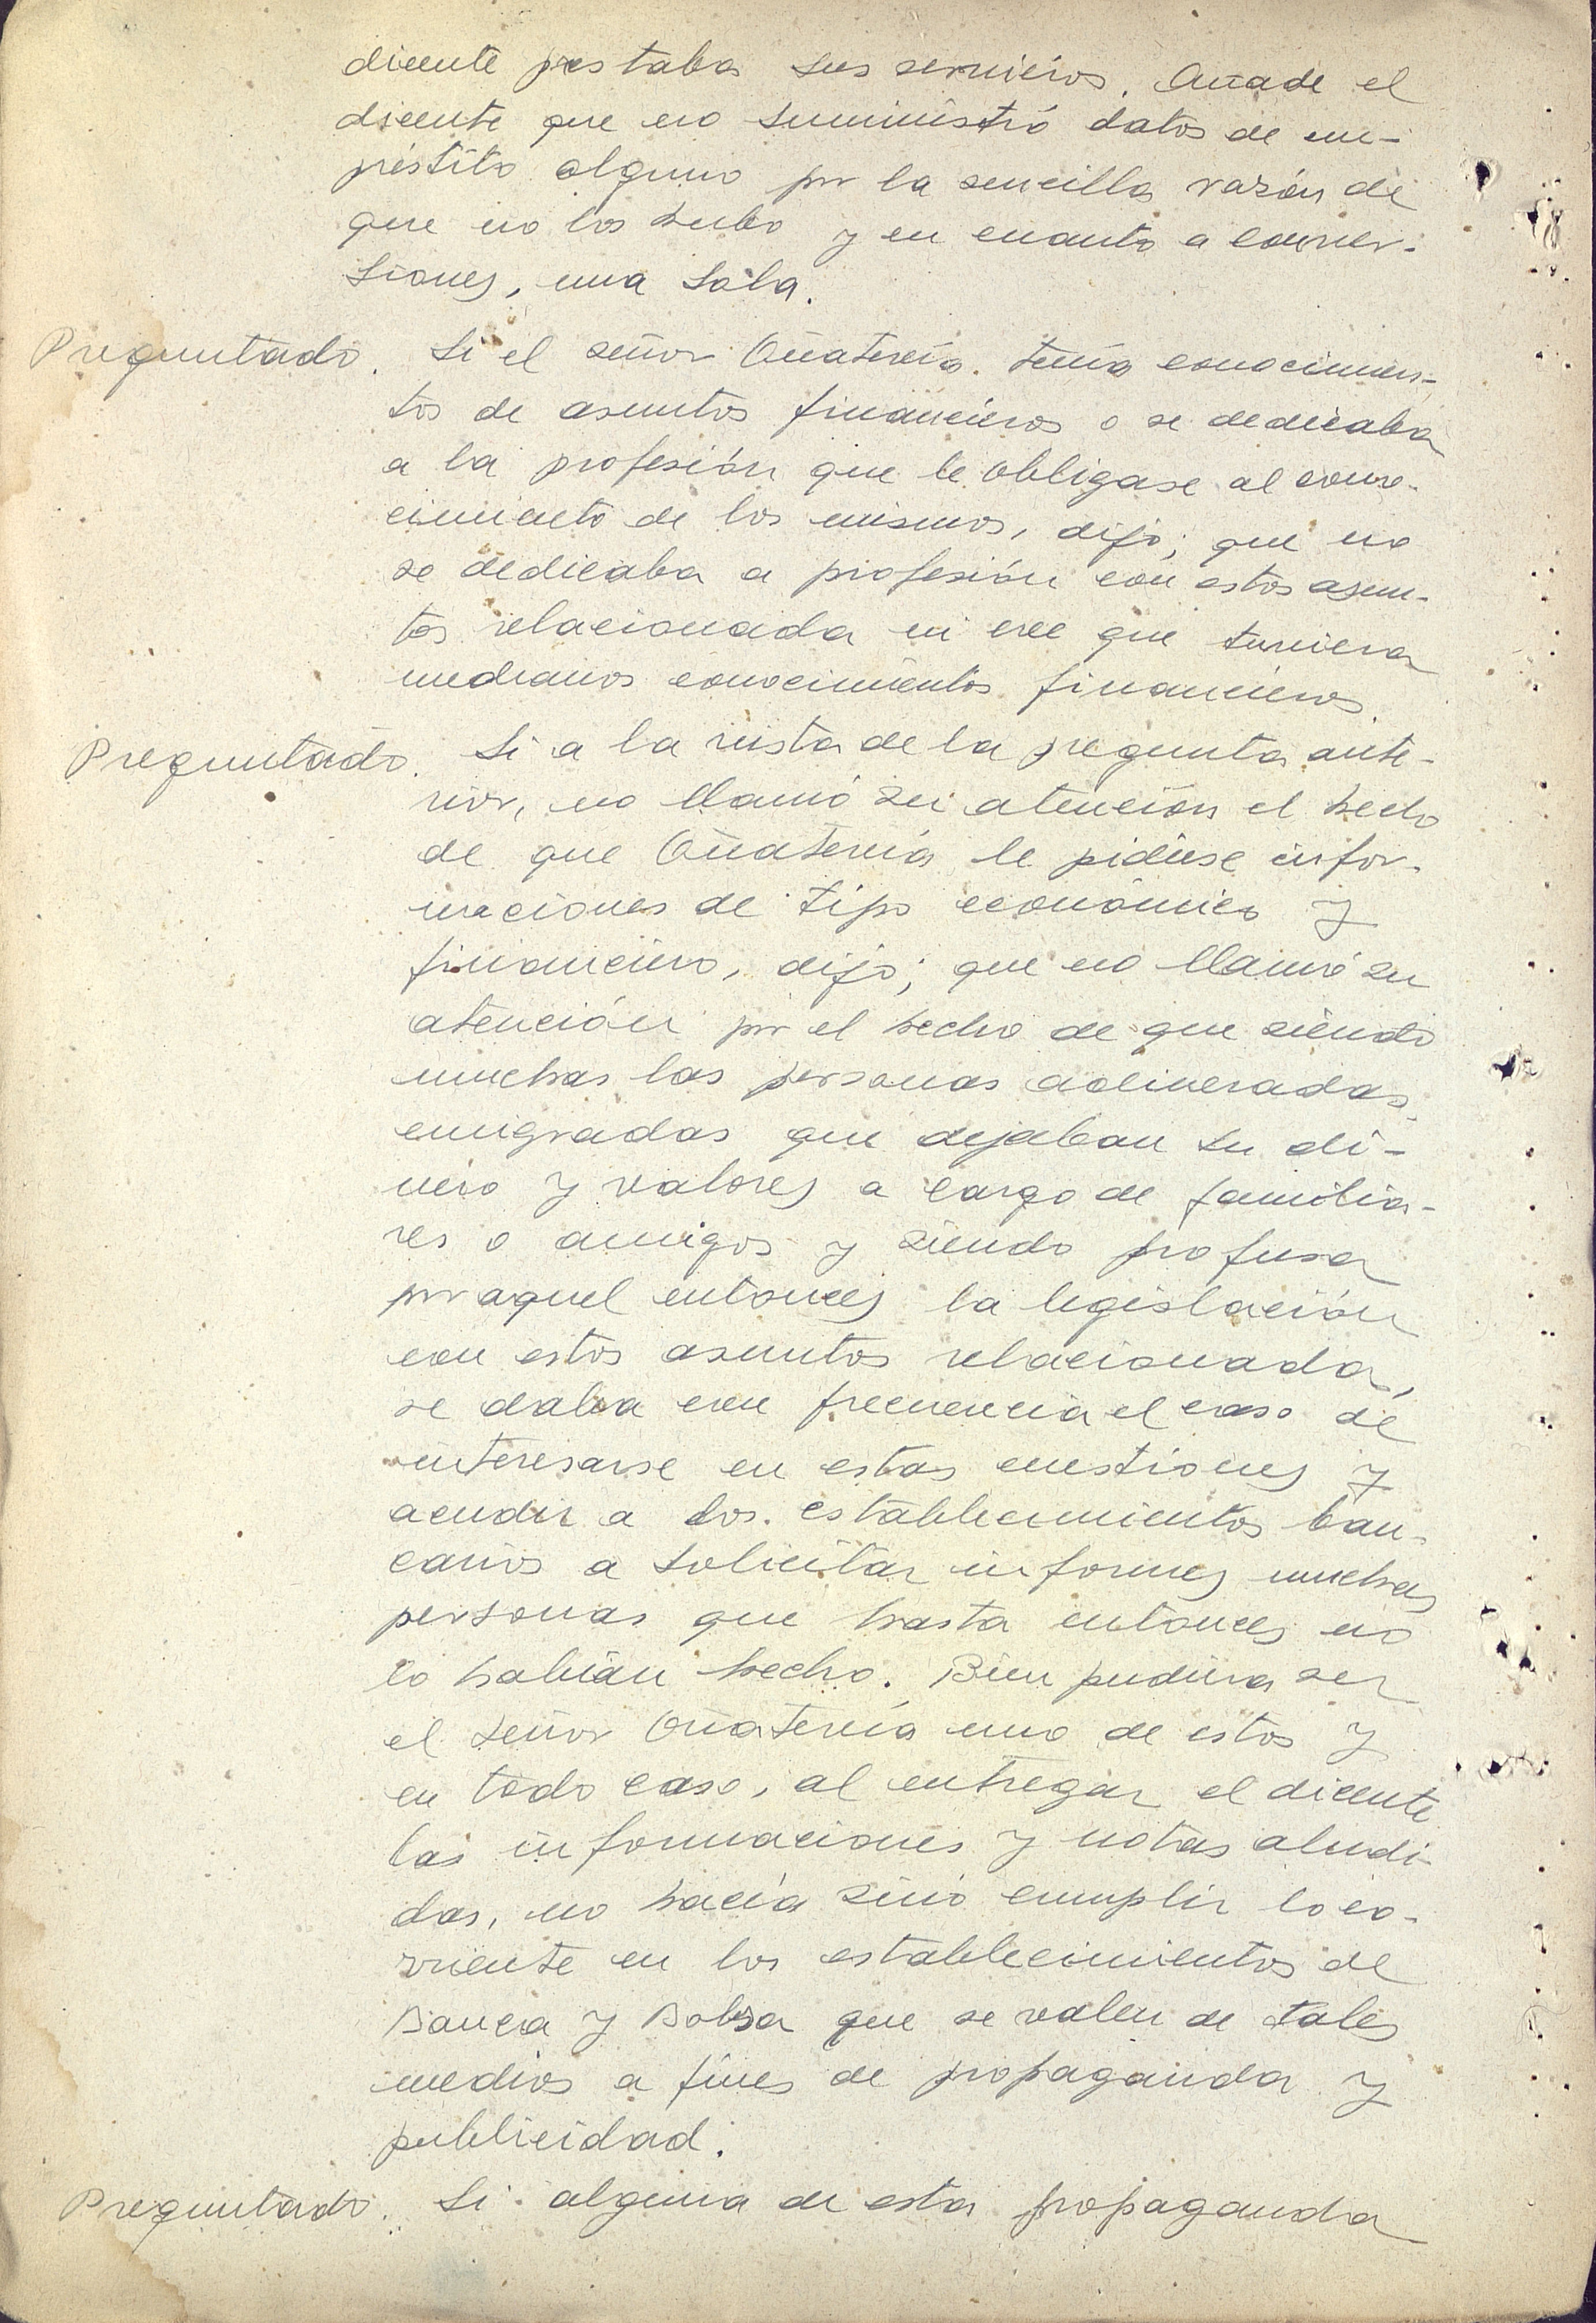 dicente prestaba sus servicios. Añade el
dicente que no suministró datos de em-
préstito alguno por la sencilla razón de
que no los hubo y en cuanto a conver-
siones, una sola.
Preguntado. Si el señor Oñatevía. tenía conocimien-
tos de asuntos financieros o se dedicaba
a la profesión que le obligase al cono-
cimiento de los mismos, dijo; que no
se dedicaba a profesión con estos asun-
tos relacionada ni cree que tuviera
medianos conocimientos financieros.
Preguntado. Si a la vista de la pregunta ante-
rior, no llamó su atención el hecho
de que Oñatevía le pidiese infor-
maciones de tipo económico y
financiero, dijo; que no llamó su
atención por el hecho de que siendo
muchas las personas adineradas,
emigradas que dejaban su di-
nero y valores a cargo de familia-
res o amigos y siendo profusa
por aquel entonces la legislación
con estos asuntos relacionada,
se daba con frecuencia el caso de
interesarse en estas cuestiones y
acudir a los. establecimientos ban-
carios a solicitar informes muchas
personas que hasta entonces no
lo habían hecho. Bien pudiera ser
el señor Oñatevía uno de estos y
en todo caso, al entregar el dicente
las informaciones y notas aludi-
das, no hacía sino cumplir lo co-
rriente en los establecimientos de
Banca y Bolsa que se valen de tales
medios a fines de propaganda y
publicidad.
Preguntado. Si alguna de esta propaganda